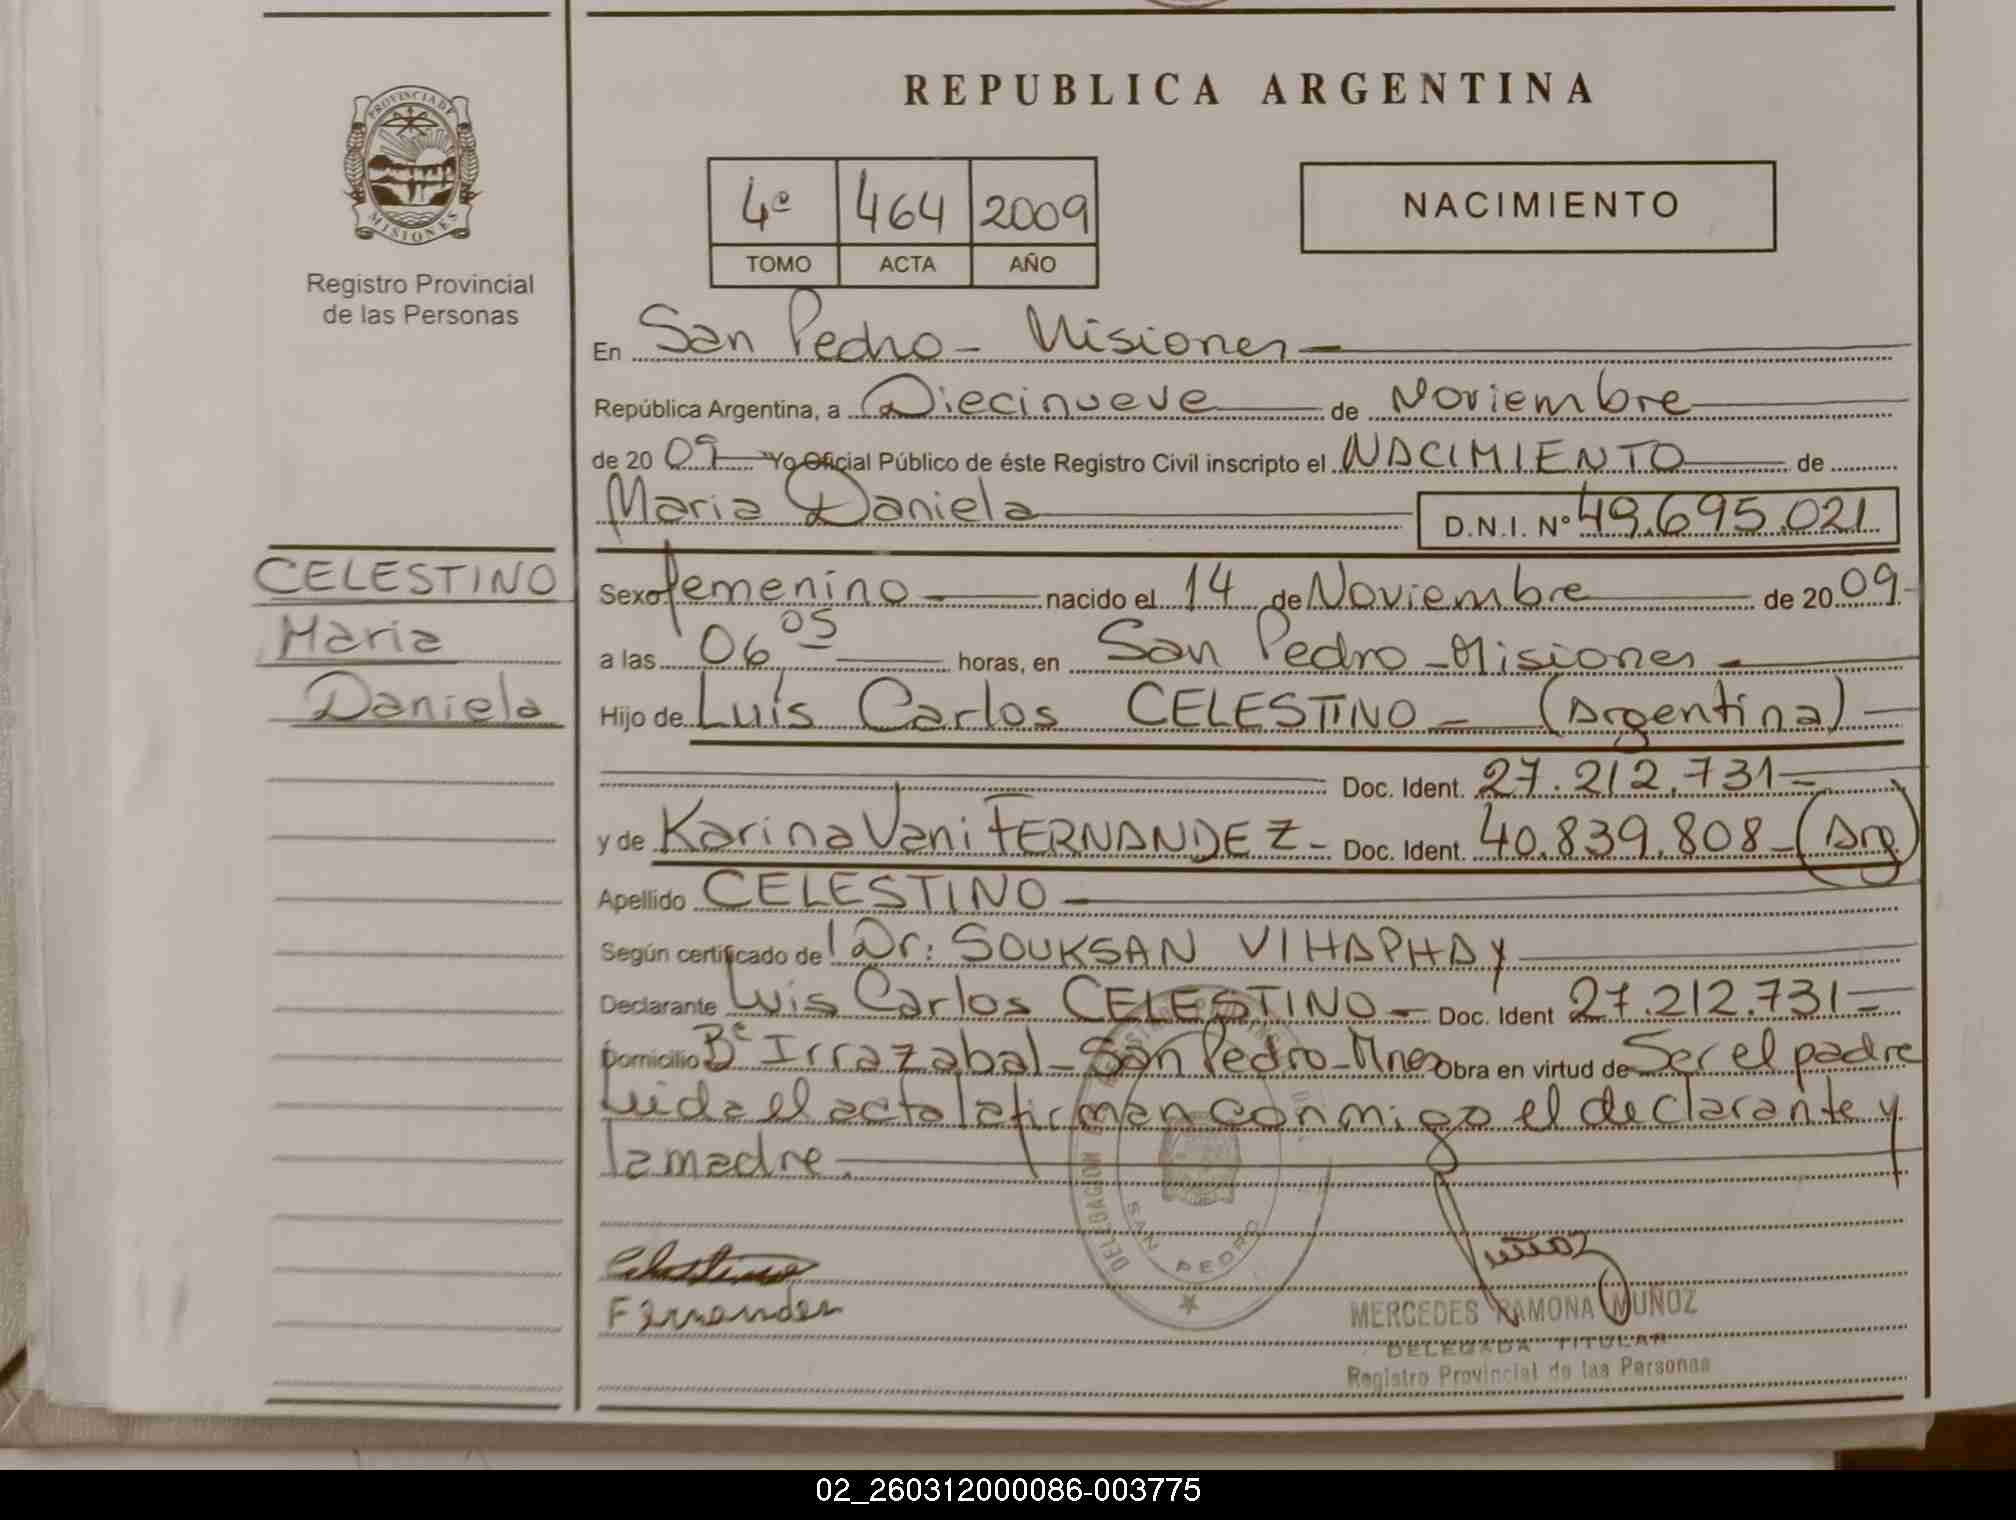 REPUBLICA ARGENTINA
PROVINCIA DE
MISIONES
Registro Provincial
de las Personas
4º 464 2009
TOMO ACTA AÑO
NACIMIENTO
En San Pedro - Misiones
República Argentina, a Diecinueve de Noviembre
de 20 09 Yo Oficial Público de éste Registro Civil inscripto el NACIMIENTO de
Maria Daniela D.N.I. Nº 49.695.021
CELESTINO
Maria
Daniela
Sexo femenino nacido el 14 de Noviembre de 20 09
a las 06,05 horas, en San Pedro - Misiones
Hijo de Luis Carlos CELESTINO - (Argentina)
Doc. Ident. 27.212.731
y de Karina Vani FERNANDEZ - Doc. Ident. 40.839.808 - (Arg)
Apellido CELESTINO
Según certificado de Dr: SOUKSAN VIHAPHAY
Declarante Luis Carlos CELESTINO - Doc. Ident 27.212.731
Domicilio Bº Irrazabal - San Pedro - Mnes Obra en virtud de Ser el padre
Leida el acta la firman conmigo el declarante y
la madre.
DELEGACION
SAN PEDRO
Celestino
Fernandez
Muñoz
MERCEDES RAMONA MUÑOZ
DELEGADA TITULAR
Registro Provincial de las Personas
02_260312000086-003775